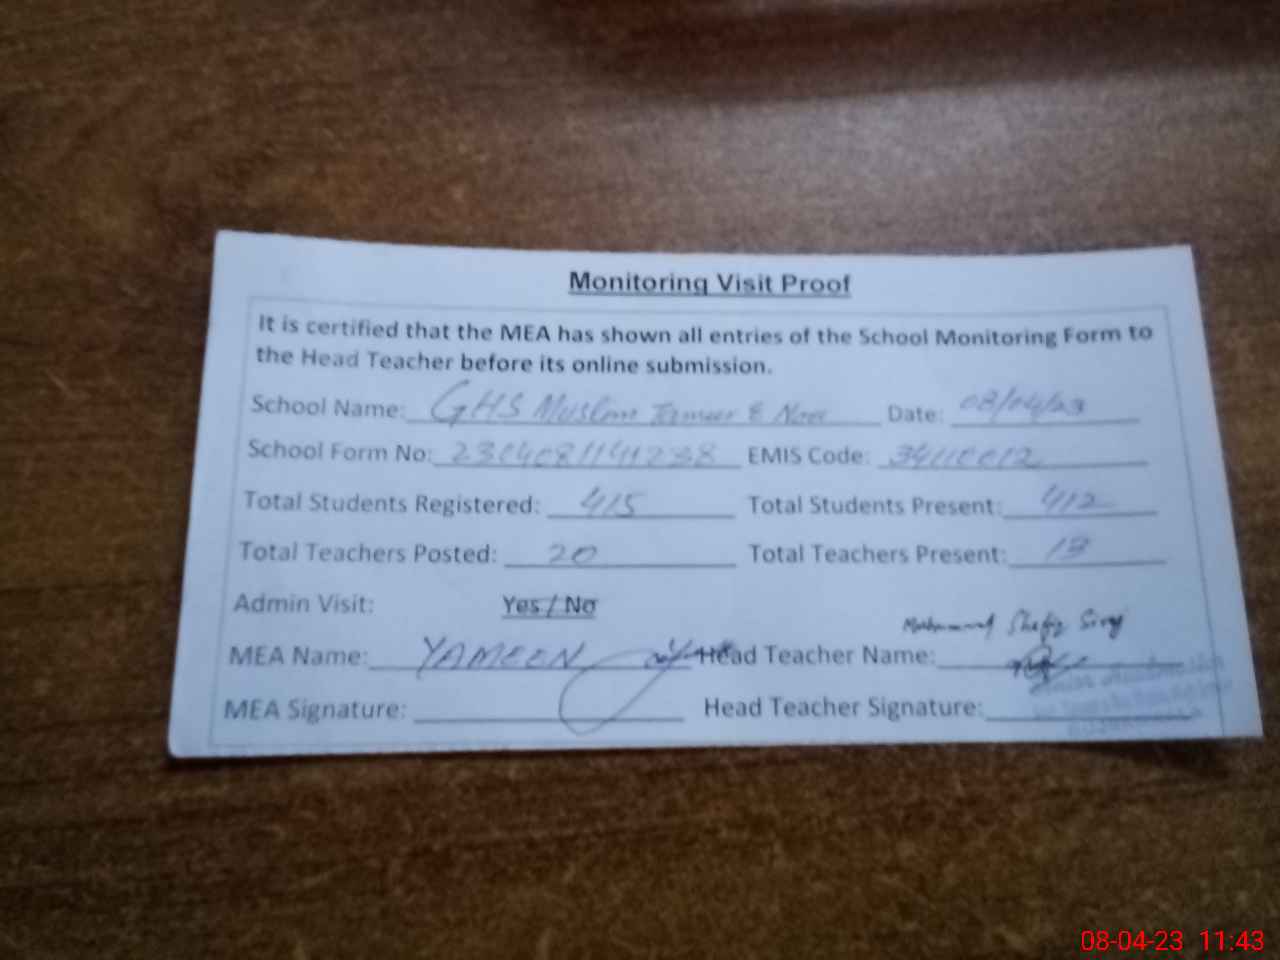 Monitoring Visit Proof
It is certified that the MEA has shown all entries of the School Monitoring Form to
the Head Teacher before its online submission.
School Name: GHS Muslim Tameer E Nau Date: 08/04/23
School Form No: 2304081141238 EMIS Code: 34110012
Total Students Registered: 415 Total Students Present: 412
Total Teachers Posted: 20 Total Teachers Present:
Admin Visit: Yes / No
Muhammad
MEA Name: YAMEEN Head Teacher Name:
MEA Signature: Head Teacher Signature:
08-04-23 11:43